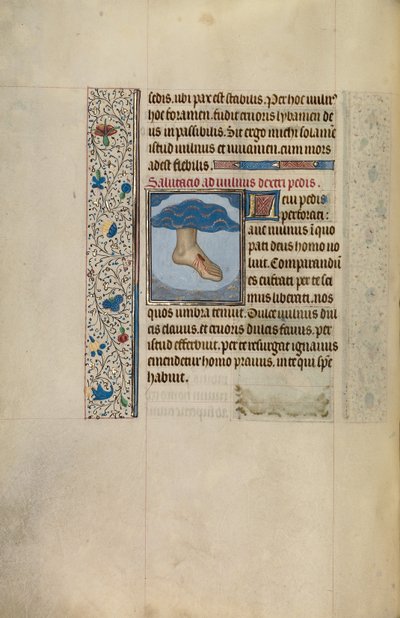 sedis. ubi pax est stabilis. Per hoc vuln9
hoc foramen. fudit cruoris lybamen de
us inpassibilis. Sit ergo michi solamē
istud vulnus et iuvamen. cum mors
adest flebilis.
Salutacio ad vulnus dextri pedis.
Levi pedis
perforati:
ave vulnus ī quo
pati deus homo vo
luit. Comparandū
es curati per te su
mus liberati. nos
quos umbra tenuit. Dulce vulnus dul
cis clavus. et cruoris dulcis favus. per
istud effluit. per te resurgat ignavus
incendetur homo pravus. in te qui spē
habuit.